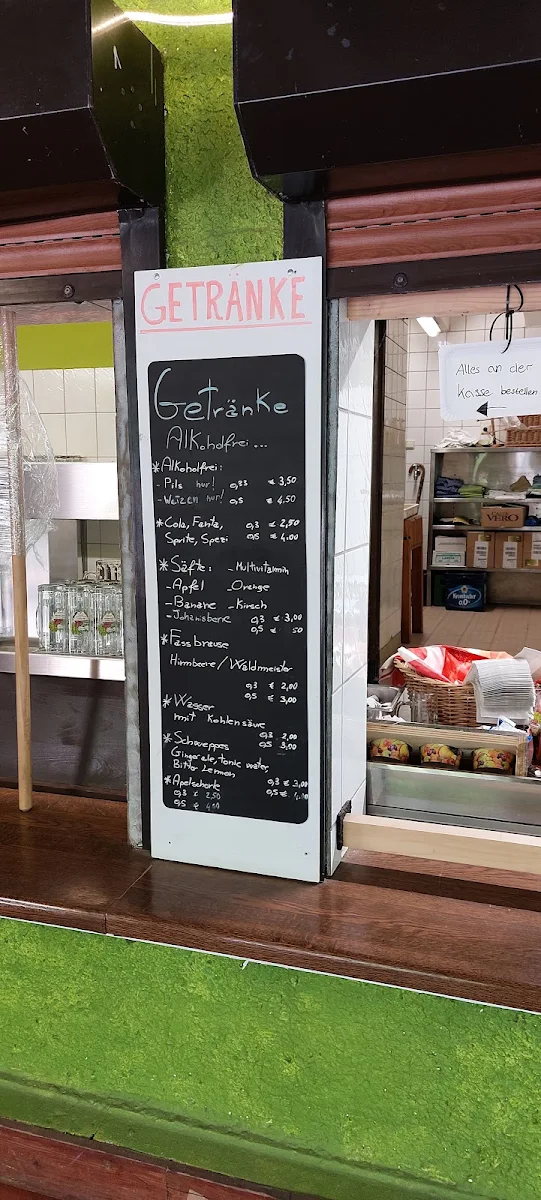 GETRÄNKE
Getränke
Alkoholfrei...
*Alkoholfrei:
- Pils nur! 0,33 € 3,50
- Weizen nur! 0,5 € 4,50
*Cola, Fanta, 0,3 € 2,50
Sprite, Spezi 0,5 € 4.00
*Säfte: - Multivitamin
- Apfel - Orange
- Banane - Kirsch
- Johanisbeere 0,3 € 3,00
0,5 € 50
*Fassbrause
Himbeere / Waldmeister
0,3 € 2,00
0,5 € 3,00
*Wasser
mit Kohlensäure
0,3 2,00
*Schweppes 0,5 3,00
Ginger ale, tonic water
Bitter Lemon
*Apfelschorle 0,3 € 3,00
0,3 € 2,50 0,5 €
0,5 €
Alles an der
Kasse bestellen
VERO